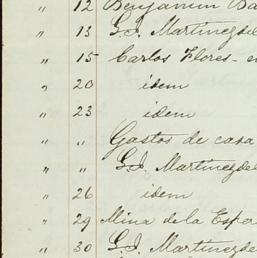 " 12 Benjamin Ba
" 13 G. J. Martinez del
" 15 Carlos Flores - e
" 20 idem
" 23 idem
" " Gastos de casa
" " G. J. Martinez del
" 26 idem
" 29 Mina de la Esper
" 30 G. J. Martinez de